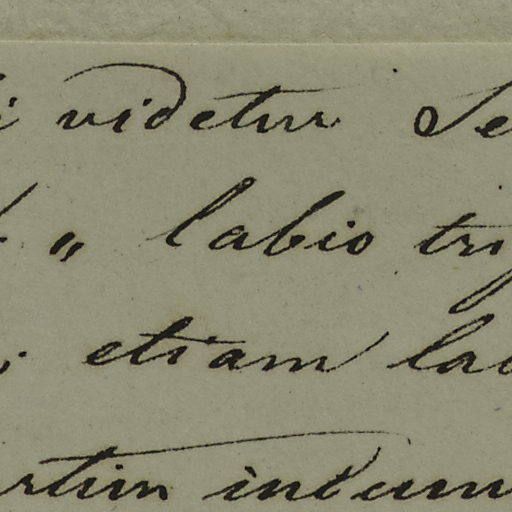 i videtur Se
„ labio tri
; etiam la
rtim indum